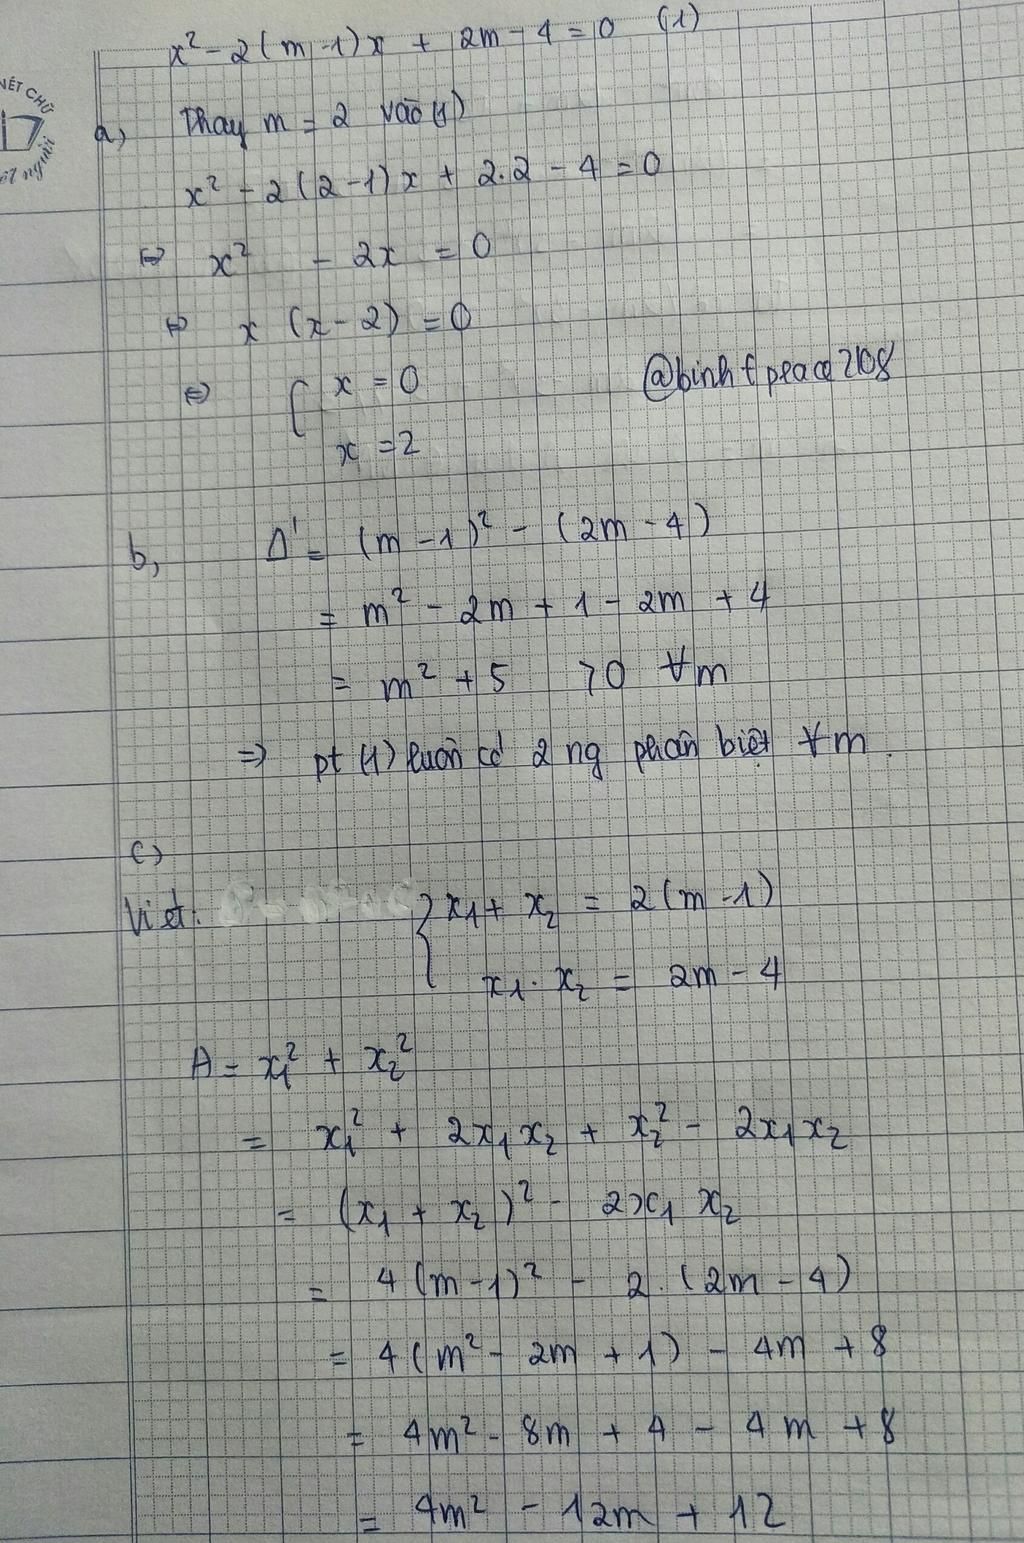 x² - 2(m-1)x + 2m - 4 = 0 (1)
VẾT CHỮ
a, Thay m = 2 vào (1)
x² - 2(2-1)x + 2.2 - 4 = 0
⇔ x² - 2x = 0
⇔ x (x - 2) = 0
⇔ [ x = 0
x = 2
@binhfpeace2108
b, Δ' = (m - 1)² - (2m - 4)
= m² - 2m + 1 - 2m + 4
= m² + 5 > 0 ∀m
=> pt (1) luôn có 2 ng phân biệt ∀m.
c)
Viét. { x₁ + x₂ = 2(m - 1)
x₁ . x₂ = 2m - 4
A = x₁² + x₂²
= x₁² + 2x₁x₂ + x₂² - 2x₁x₂
= (x₁ + x₂)² - 2x₁x₂
= 4(m-1)² - 2.(2m - 4)
= 4(m² - 2m + 1) - 4m + 8
= 4m² - 8m + 4 - 4m + 8
= 4m² - 12m + 12